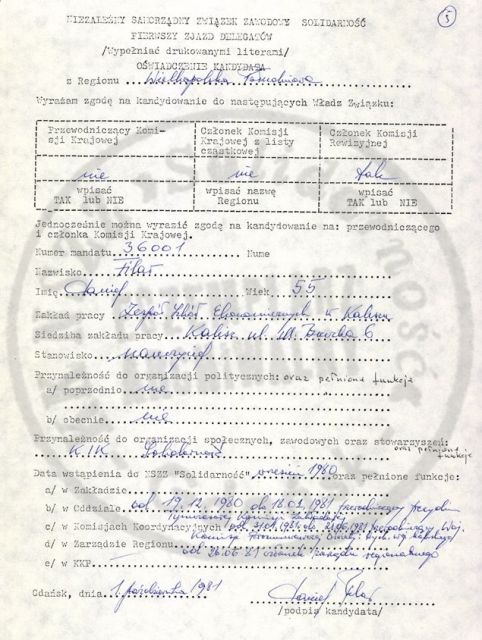 5
NIEZALEŻNY SAMORZĄDNY ZWIĄZEK ZAWODOWY SOLIDARNOŚĆ
PIERWSZY ZJAZD DELEGATÓW
/Wypełniać drukowanymi literami/
OŚWIADCZENIE KANDYDATA
z Regionu Wielkopolska Południowa
Wyrażam zgodę na kandydowanie do następujących Władz Związku:
Przewodniczący Komisji Krajowej
Członek Komisji Krajowej z listy cząstkowej
Członek Komisji Rewizyjnej
nie nie tak
wpisać TAK lub NIE
wpisać nazwę Regionu
wpisać TAK lub NIE
Jednocześnie można wyrazić zgodę na kandydowanie na: przewodniczącego
i członka Komisji Krajowej.
Numer mandatu 36001 Nume
Nazwisko
Imię Daniel Wiek 55
Zakład pracy Zespół Szkół Ekonomicznych w Kaliszu
Siedziba zakładu pracy Kalisz ul. 6
Stanowisko nauczyciel
Przynależność do organizacji politycznych: oraz pełnione funkcje
a/ poprzednio nie
b/ obecnie nie
Przynależność do organizacji społecznych, zawodowych oraz stowarzyszeń:
oraz pełnione funkcje
K.I.K. Solidarność
Data wstąpienia do NSZZ "Solidarność" wrzesień 1980 oraz pełnione funkcje:
a/ w Zakładzie
b/ w Oddziale od 19.12.1980 do
c/ w Komisjach Koordynacyjnych
d/ w Zarządzie Regionu członek Zarządu regionalnego
e/ w KKP
Gdańsk, dnia 1 października 1981
Daniel
/podpis kandydata/